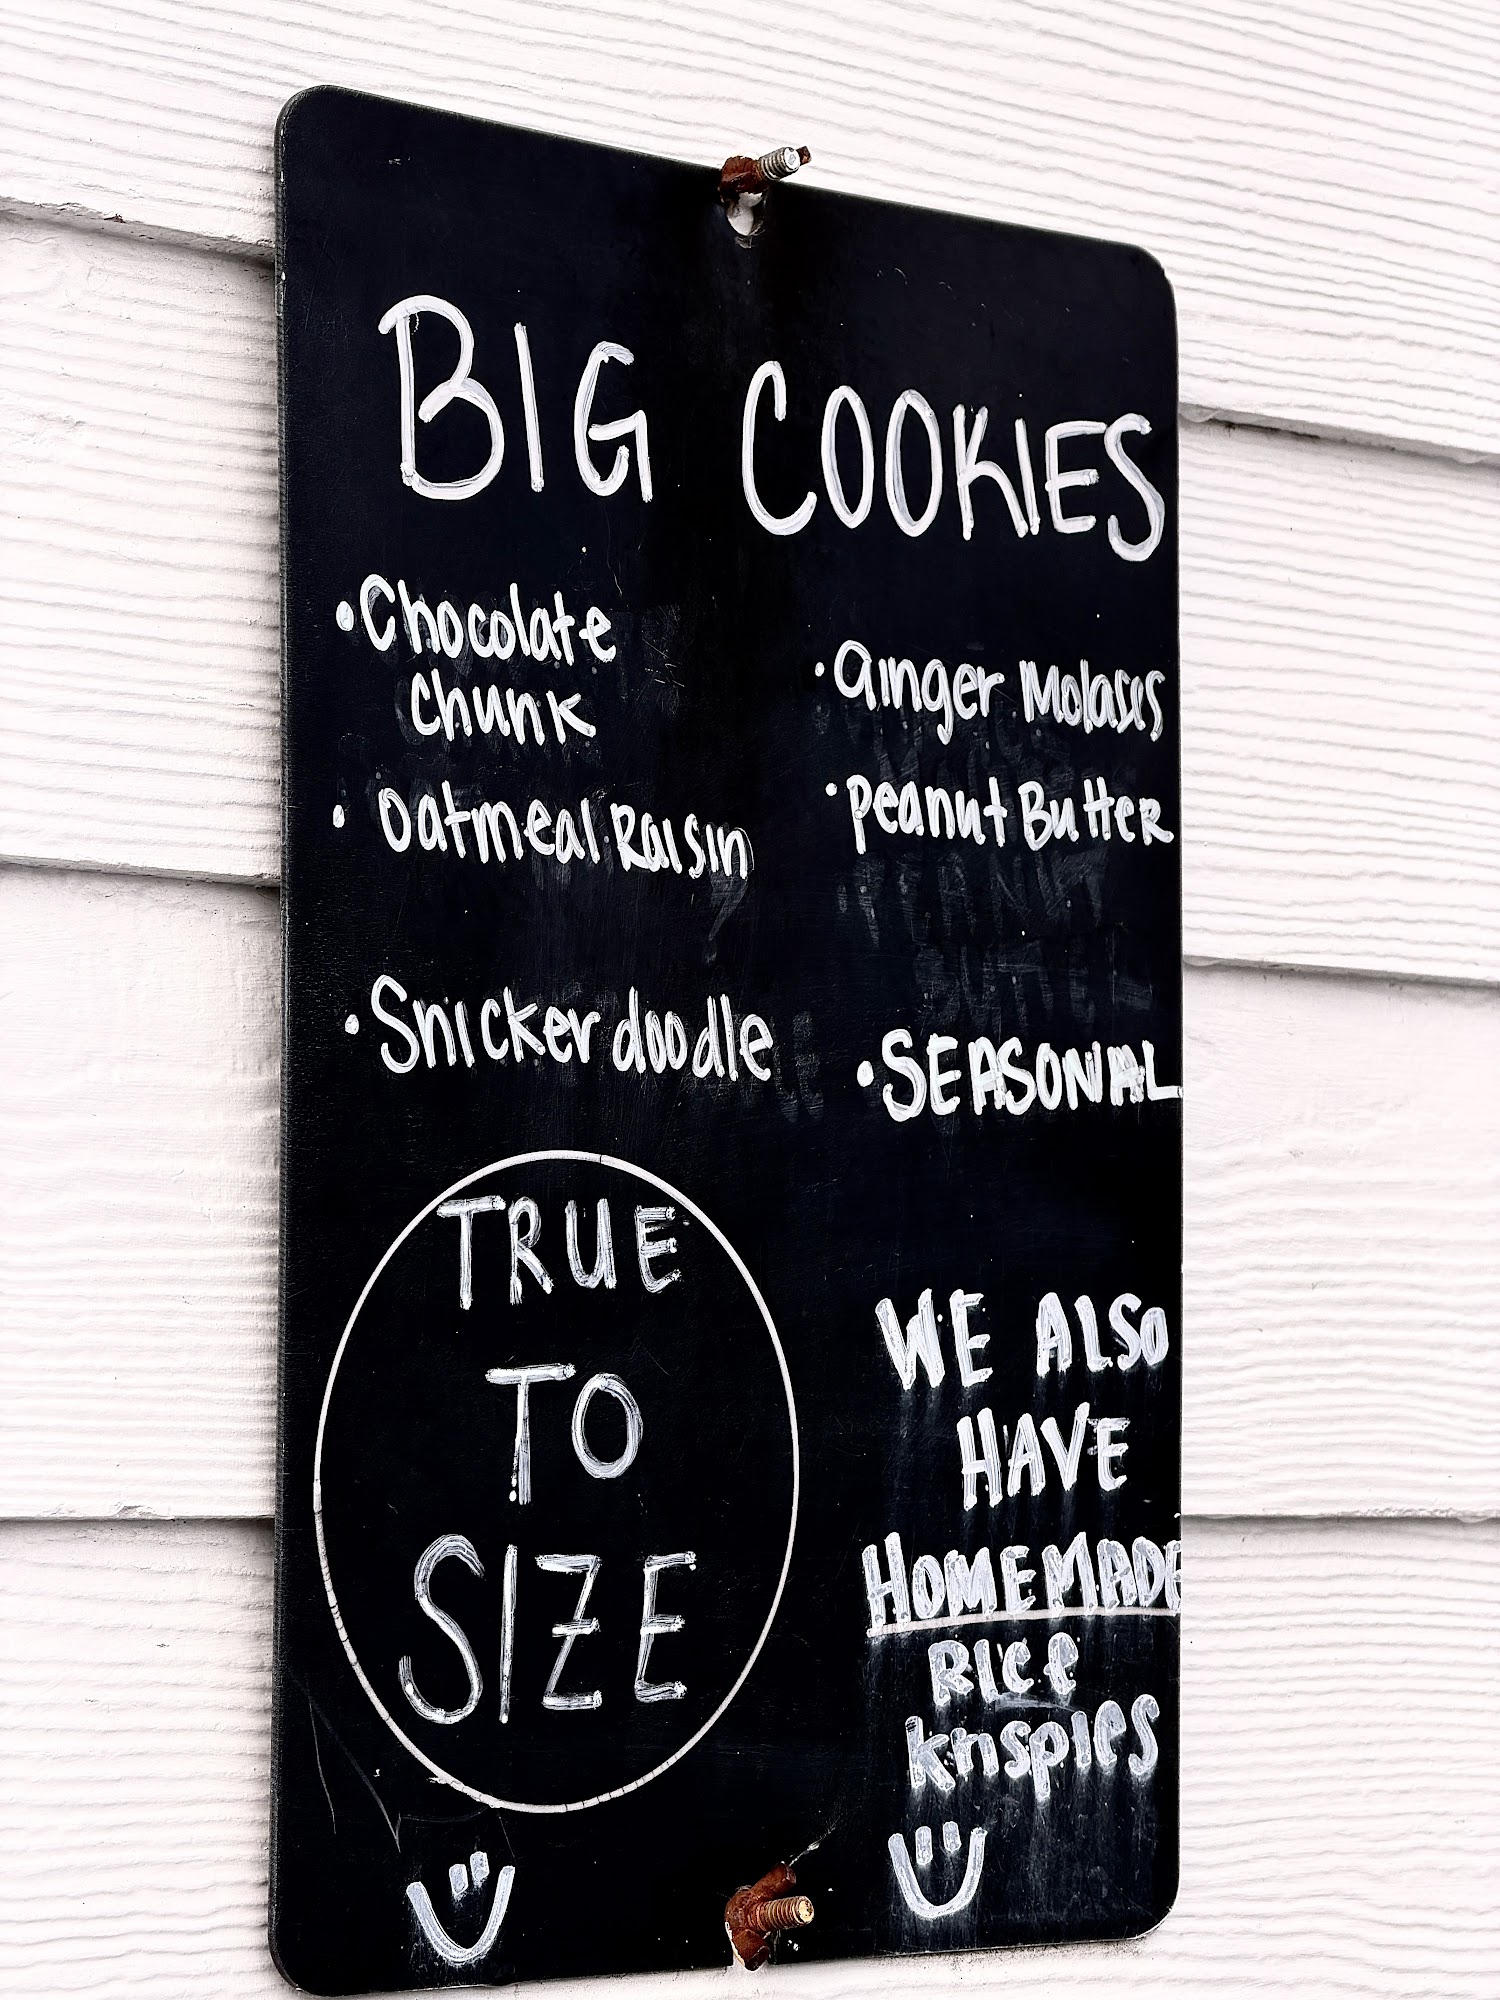 BIG COOKIES
• Chocolate
chunk
• Oatmeal Raisin
• Snickerdoodle
• Ginger Molasses
• Peanut Butter
• SEASONAL
TRUE
TO
SIZE
WE ALSO
HAVE
HOMEMADE
Rice
krispies